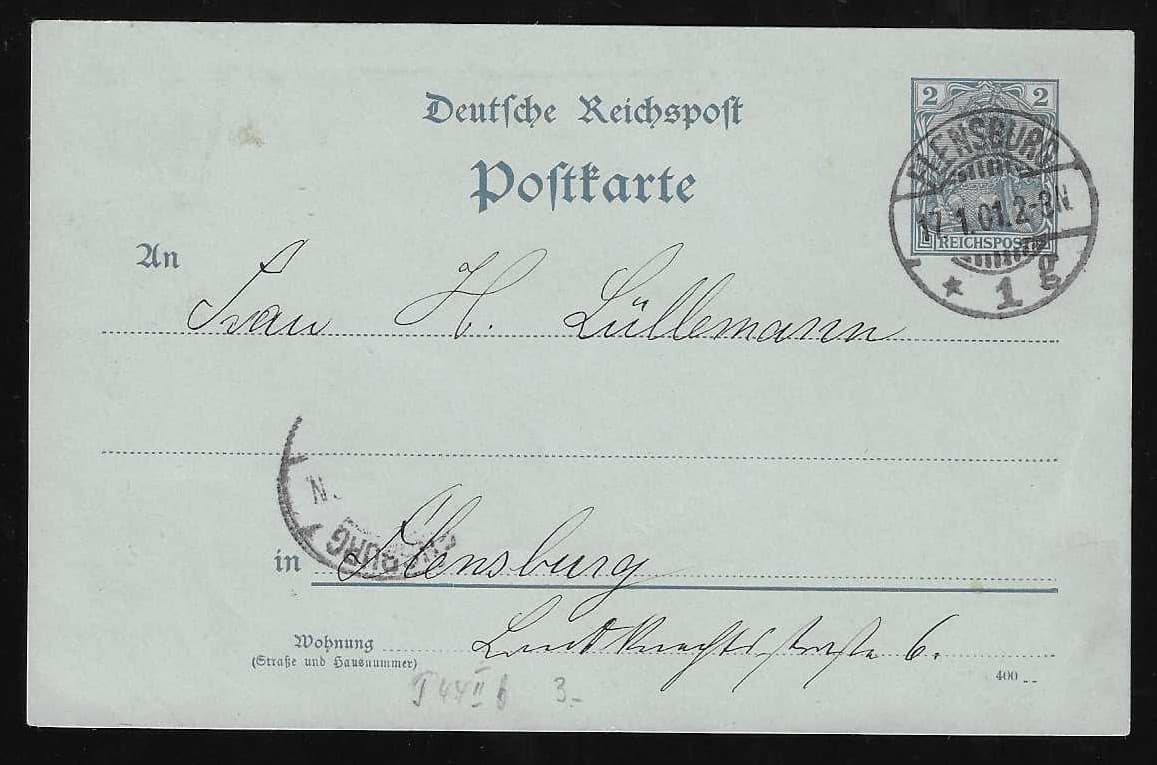 Deutsche Reichspost
Postkarte
2 2
REICHSPOST
FLENSBURG
17.1.01.2-8N
* 1 g
An
Frau H. Lüllemann
N
BURG
in Flensburg
Wohnung
(Straße und Hausnummer)
6.
400
3.-